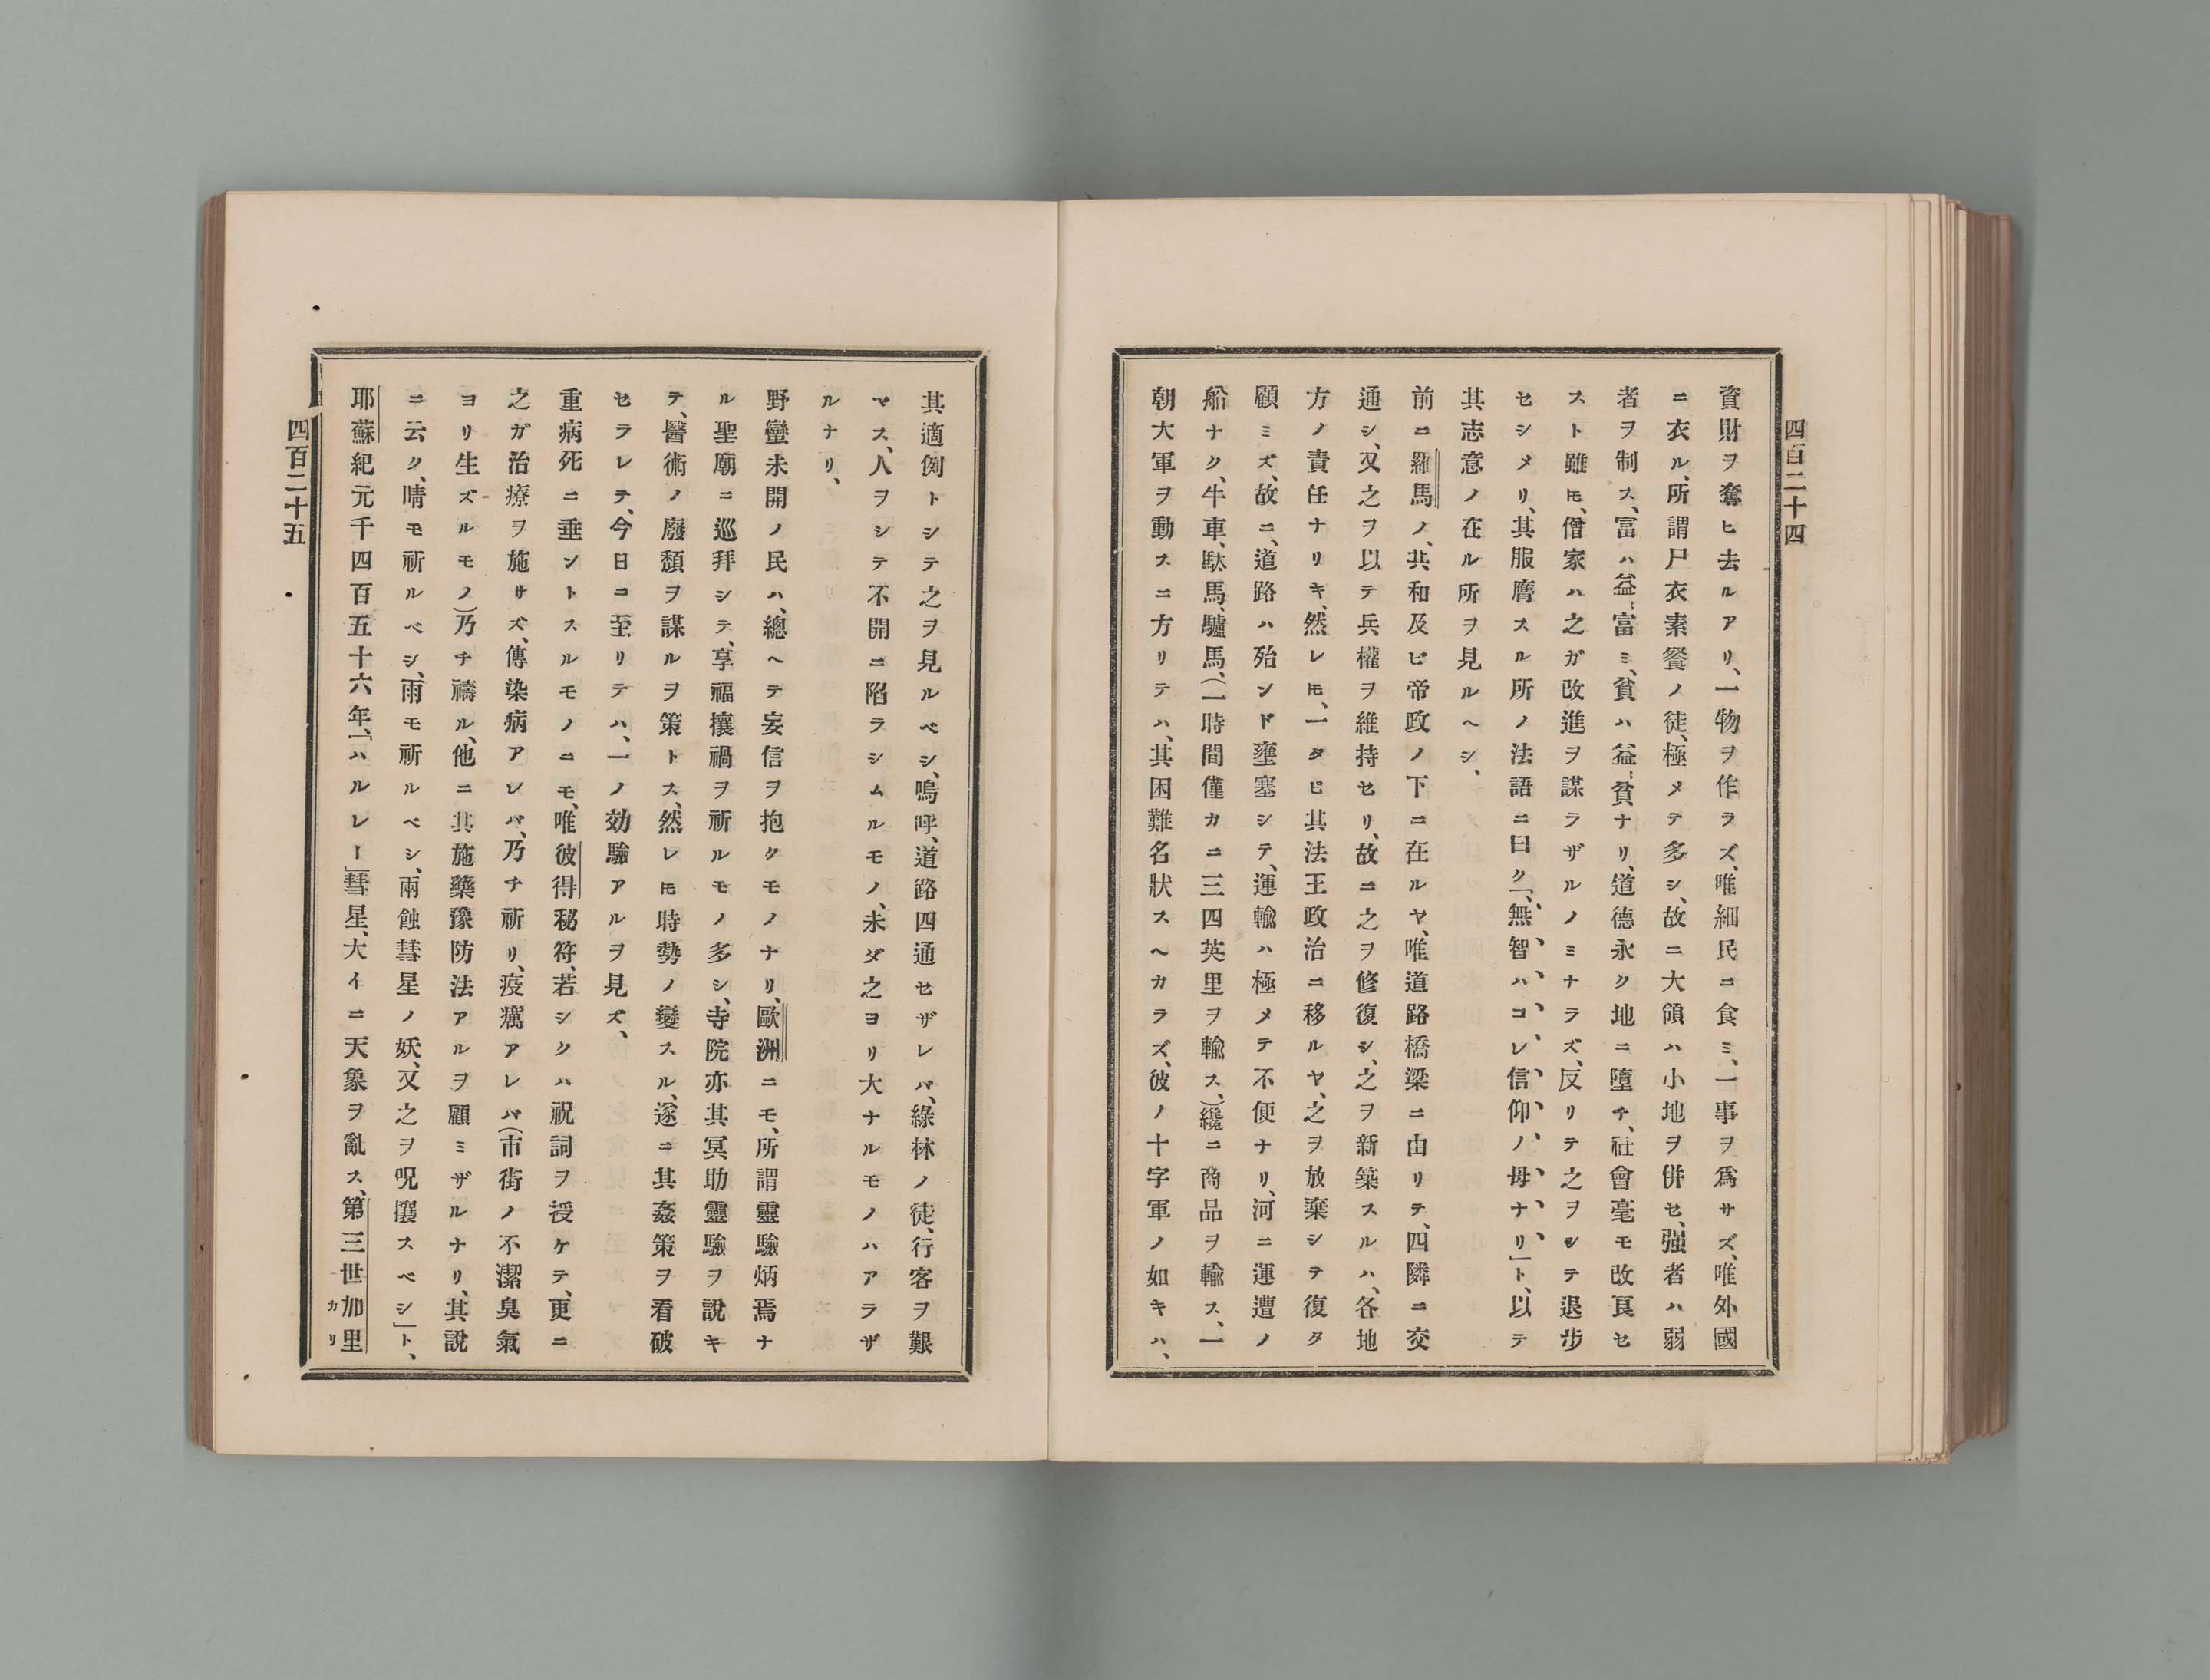 四百二十四
資財ヲ奪ヒ去ルアリ、一物ヲ作ラズ、唯細民ニ食ミ、一事ヲ爲サズ、唯外國
ニ衣ル、所謂尸衣素餐ノ徒、極メテ多シ、故ニ大領ハ小地ヲ併セ、强者ハ弱
者ヲ制ス、富ハ益〻富ミ、貧ハ益〻貧ナリ、道德永ク地ニ墮チ、社會毫モ改良セ
スト雖𪜈、僧家ハ之ガ改進ヲ謀ラザルノミナラズ、反リテ之ヲシテ退步
セシメリ、其服膺スル所ノ法語ニ曰ク、「無智ハコレ信仰ノ母ナリ」ト、以テ
其志意ノ在ル所ヲ見ルヘシ、
前ニ羅馬ノ、共和及ビ帝政ノ下ニ在ルヤ、唯道路橋梁ニ由リテ、四隣ニ交
通シ、又之ヲ以テ兵權ヲ維持セリ、故ニ之ヲ修復シ、之ヲ新築スルハ、各地
方ノ責任ナリキ、然レ𪜈、一タビ其法王政治ニ移ルヤ、之ヲ放棄シテ復タ
顧ミズ、故ニ、道路ハ殆ンド壅塞シテ、運輸ハ極メテ不便ナリ、河ニ運漕ノ
船ナク、牛車、駄馬、驢馬、(一時間僅カニ三四英里ヲ輸ス、)纔ニ商品ヲ輸ス、一
朝大軍ヲ動スニ方リテハ、其困難名狀スヘカラズ、彼ノ十字軍ノ如キハ、
其適例トシテ之ヲ見ルベシ、嗚呼、道路四通セザレバ、綠林ノ徒、行客ヲ艱
マス、人ヲシテ不開ニ陷ラシムルモノ、未ダ之ヨリ大ナルモノハアラザ
ルナリ、
野蠻未開ノ民ハ、總ヘテ妄信ヲ抱クモノナリ、歐洲ニモ、所謂靈驗炳焉ナ
ル聖廟ニ巡拜シテ、享福攘禍ヲ祈ルモノ多シ、寺院亦其冥助靈驗ヲ說キ
テ、醫術ノ廢頽ヲ謀ルヲ策トス、然レ𪜈時勢ノ變スル、遂ニ其姦策ヲ看破
セラレテ、今日ニ至リテハ、一ノ効驗アルヲ見ズ、
重病死ニ垂ントスルモノニモ、唯彼得秘符、若シクハ祝詞ヲ授ケテ、更ニ
之ガ治療ヲ施サズ、傳染病アレバ、乃チ祈リ、疫癘アレバ(市街ノ不潔臭氣
ヨリ生ズルモノ)乃チ禱ル、他ニ其施藥豫防法アルヲ顧ミザルナリ、其說
ニ云ク、「晴モ祈ルベシ、雨モ祈ルベシ、兩蝕彗星ノ妖、又之ヲ呪攘スベシ」ト、
耶蘇紀元千四百五十六年、「ハルレー」彗星、大イニ天象ヲ亂ス、第三世加里
カリ
四百二十五